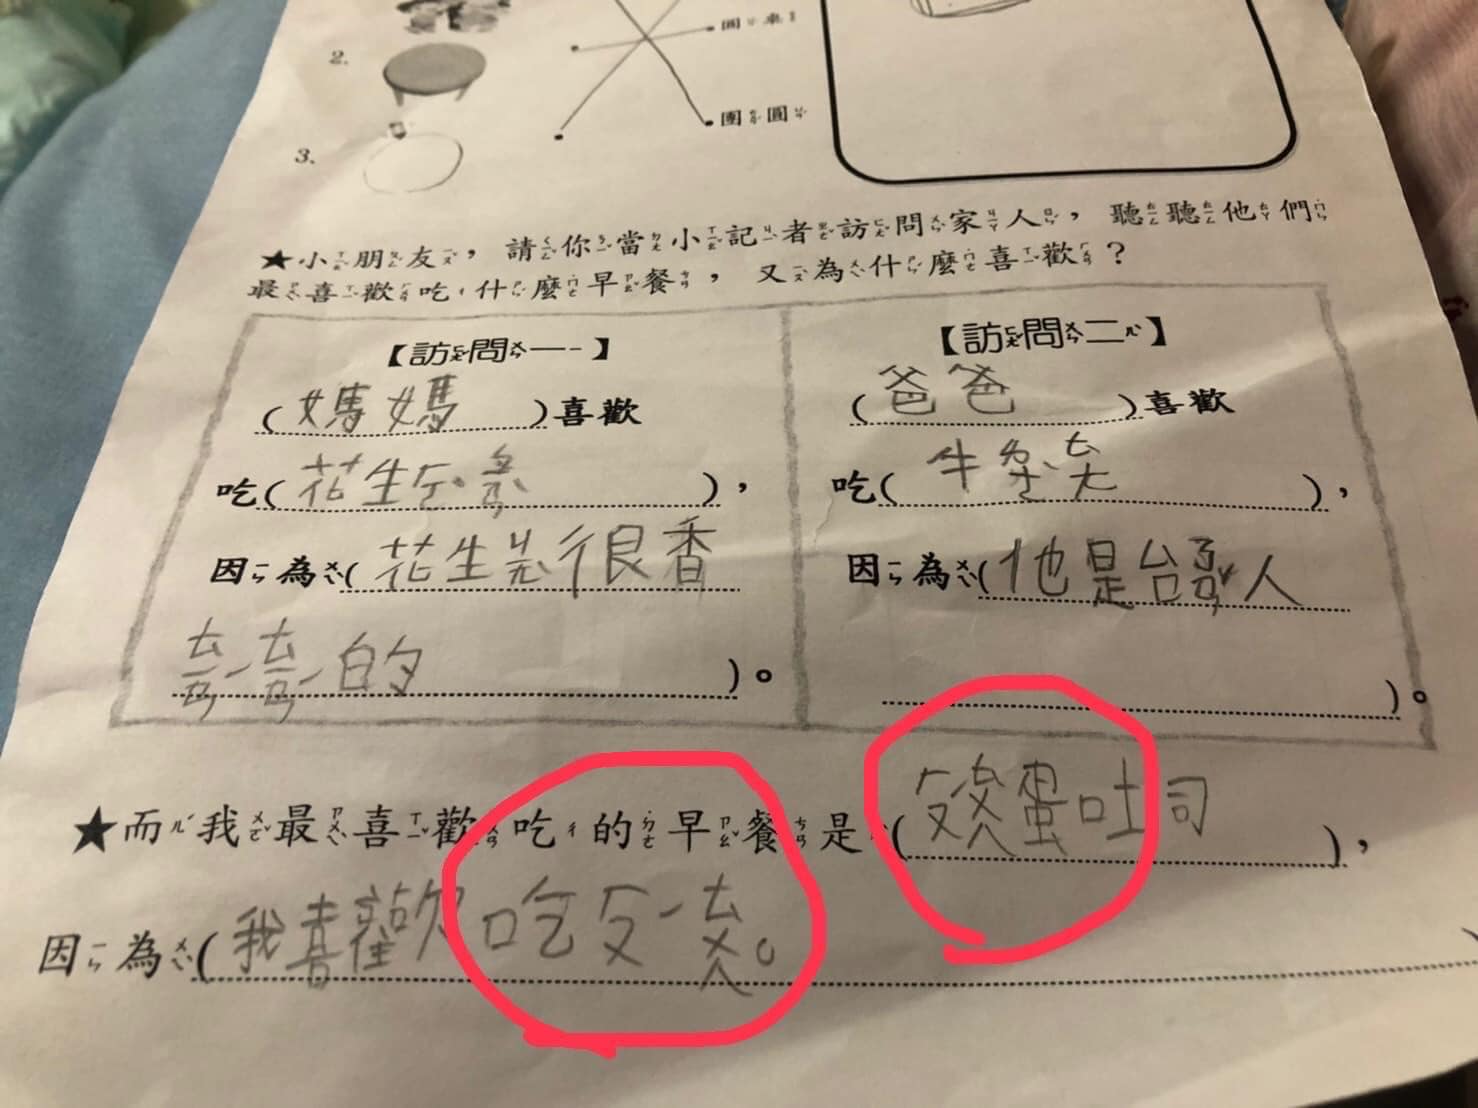 2.
圓桌
團圓
3.
★小朋友,請你當小記者訪問家人,聽聽他們
最喜歡吃什麼早餐,又為什麼喜歡?
【訪問一】
(媽媽)喜歡
吃(花生),
因為(花生ㄐㄤ很香
ㄊㄧㄢˊㄊㄧㄢˊ的)。
【訪問二】
(爸爸)喜歡
吃(牛),
因為(他是台ㄨㄢ人
)。
★而我最喜歡吃的早餐是(蛋吐司),
因為(我喜歡吃。)